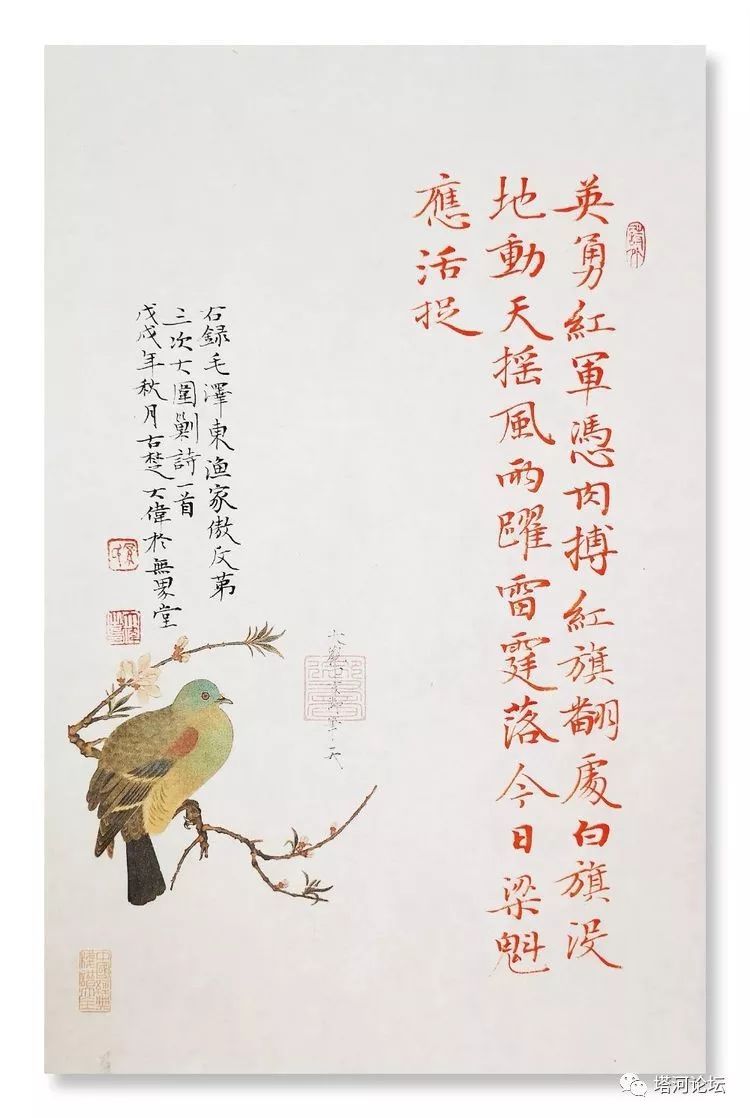 英勇紅軍憑肉搏紅旗翻處白旗没
地動天摇風雨躍雷霆落今日梁魁
應活捉
右録毛澤東渔家傲反苐
三次大圍剿詩一首
戊戌年秋月古楚大偉於無界堂
塔河论坛